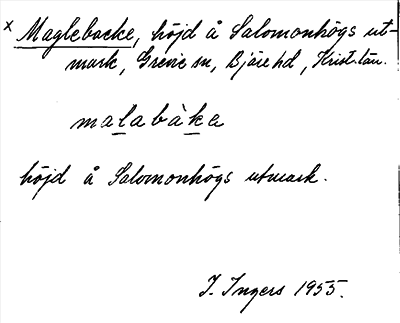 x Maglebacke, höjd å Salomonhögs ut-
mark, Grevie sn, Bjäre hd, Krist. län.
malabàka
höjd å Salomonhögs utmark.
I. Ingers 1955.